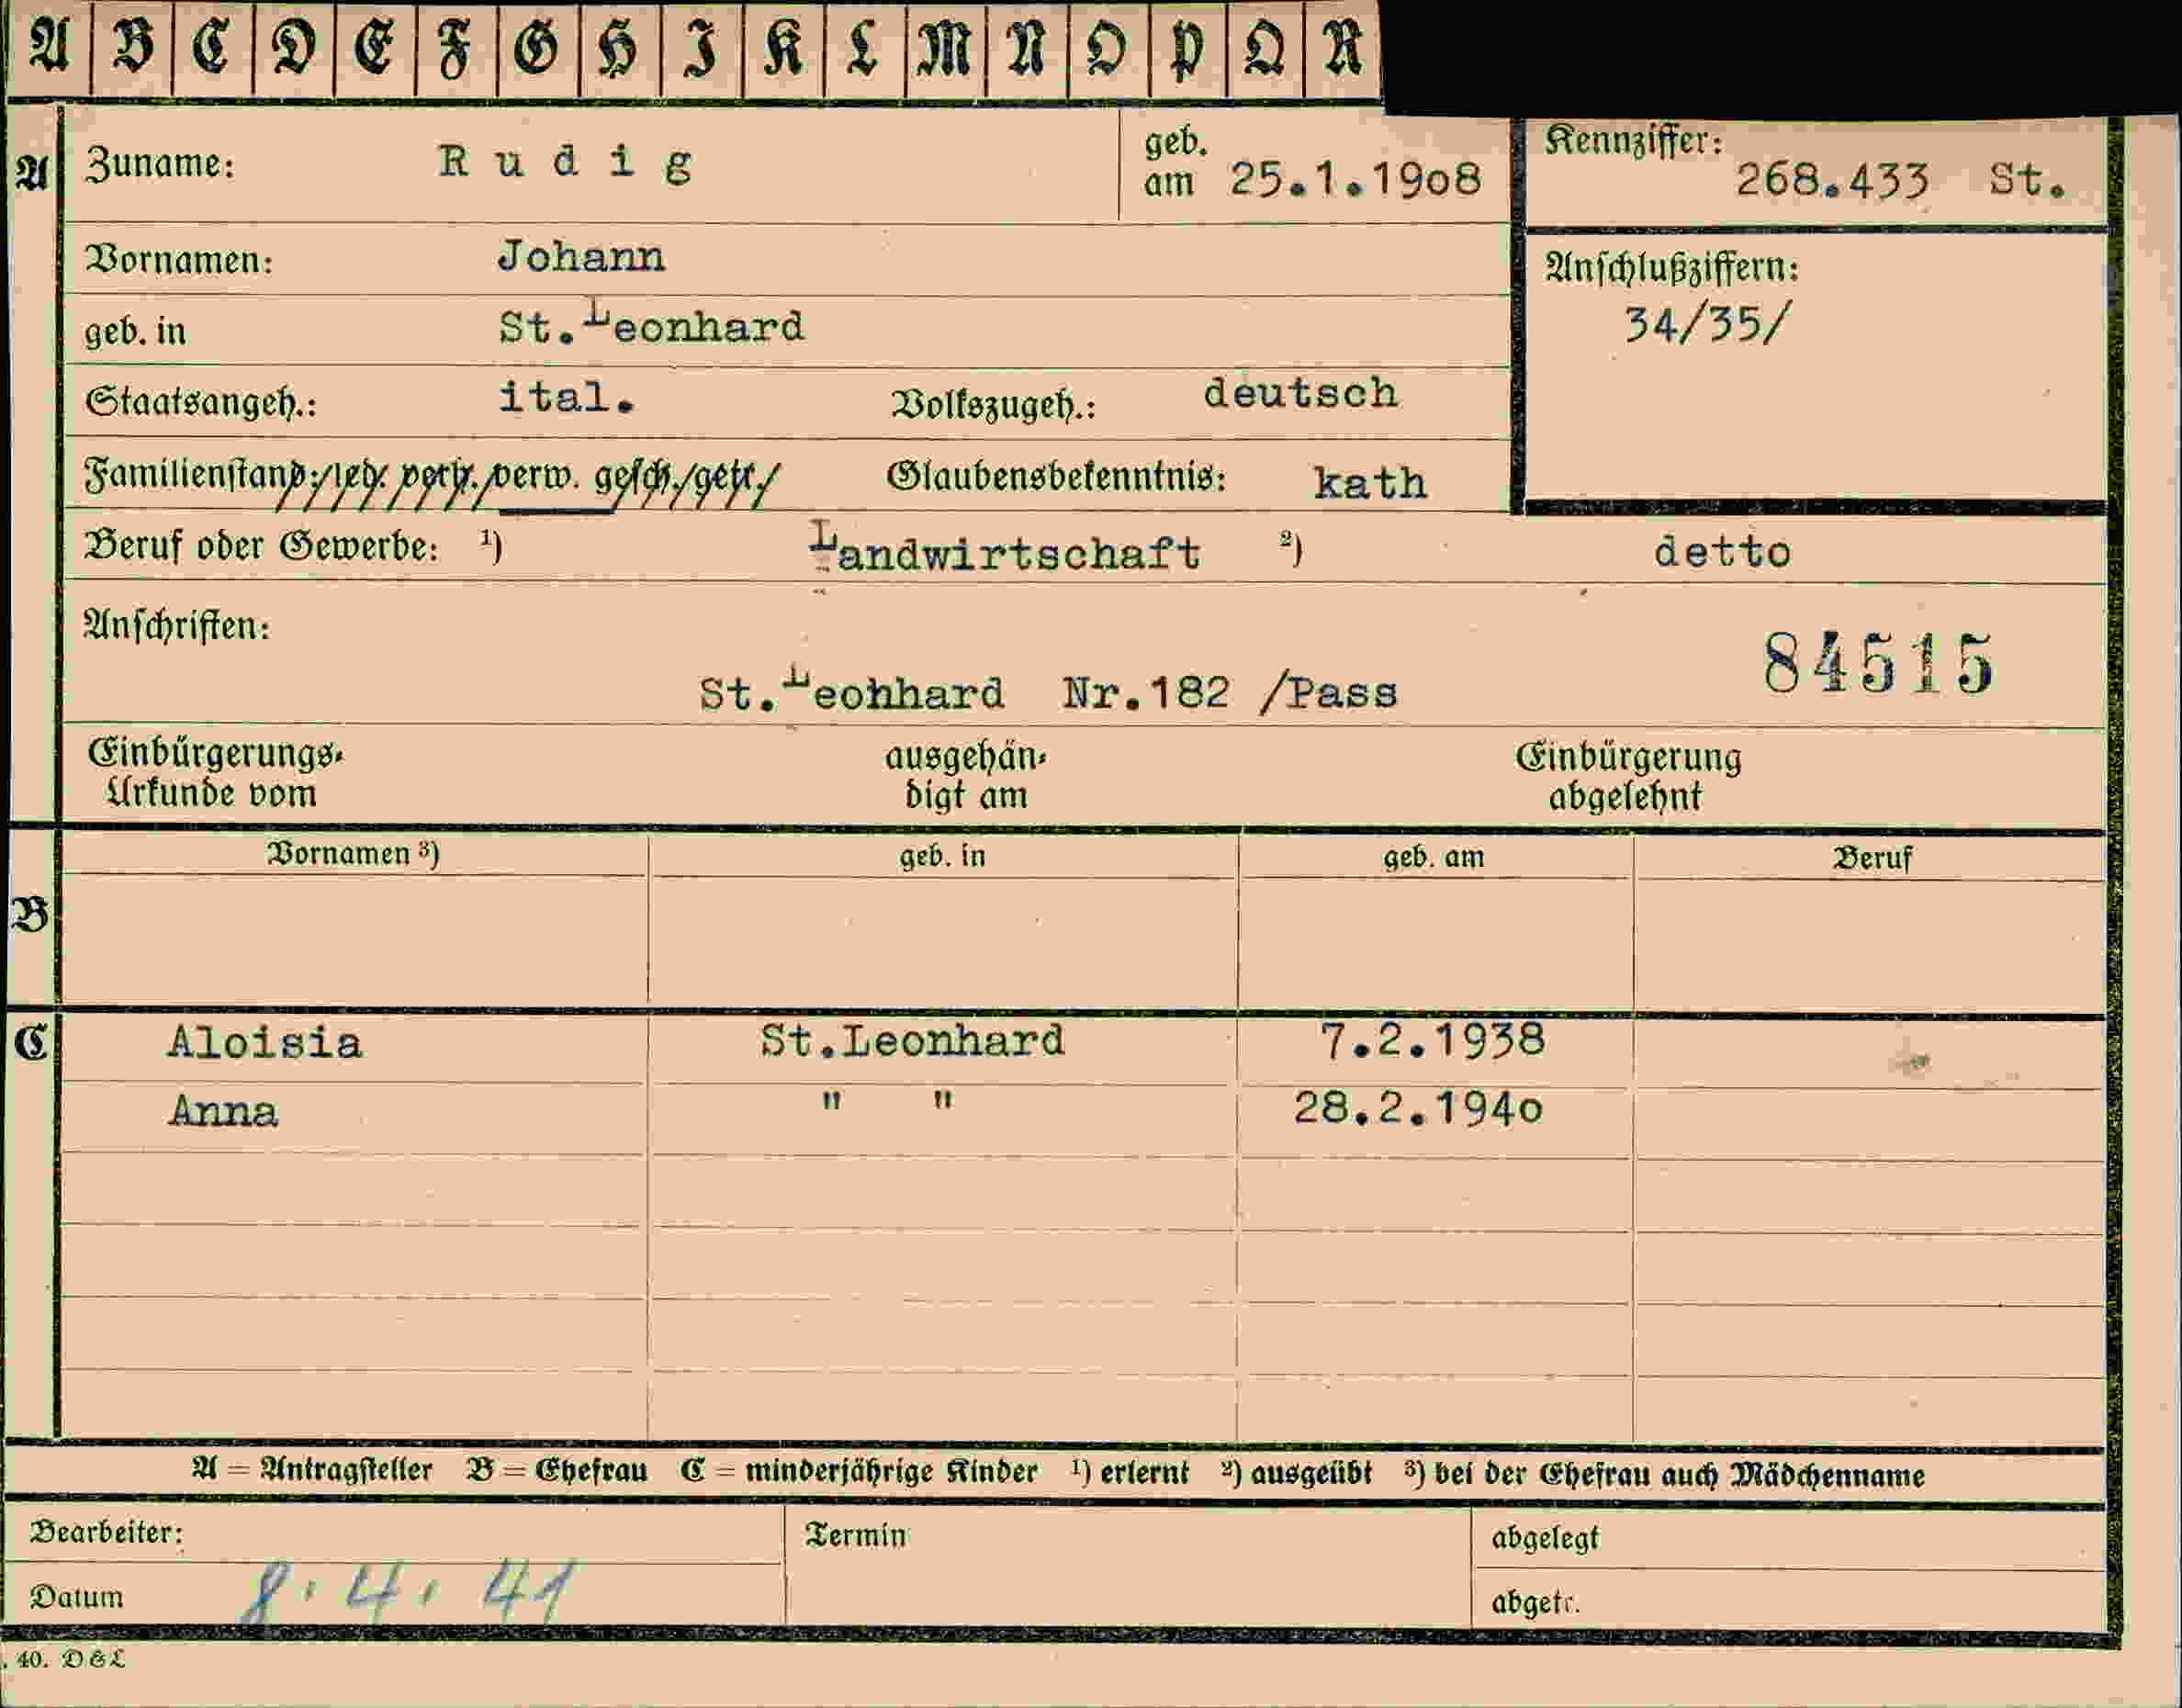 A B C D E F G H I K L M N O P Q R
A Zuname: Rudig geb. am 25.1.19o8 Kennziffer: 268.433 St.
Vornamen: Johann Anschlußziffern:
geb. in St.Leonhard 34/35/
Staatsangeh.: ital. Volkszugeh.: deutsch
Familienstand: led. verh. verw. gesch. getr. Glaubensbekenntnis: kath
Beruf oder Gewerbe: 1) Landwirtschaft 2) detto
Anschriften: 84515
St.Leonhard Nr.182 /Pass
Einbürgerungs- ausgehän- Einbürgerung
Urkunde vom digt am abgelehnt
Vornamen 3) geb. in geb. am Beruf
B
C Aloisia St.Leonhard 7.2.1938
Anna " " 28.2.194o
A = Antragsteller B = Ehefrau C = minderjährige Kinder 1) erlernt 2) ausgeübt 3) bei der Ehefrau auch Mädchenname
Bearbeiter: Termin abgelegt
Datum 8.4.41 abgetr.
. 40. D&L